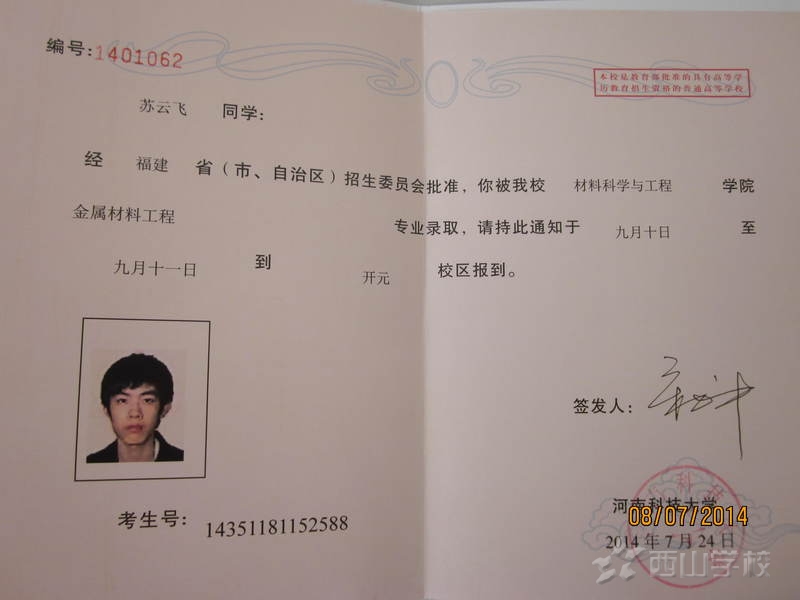 编号:1401062
本校是教育部批准的具有高等学
历教育招生资格的普通高等学校
苏云飞 同学:
经 福建 省(市、自治区)招生委员会批准,你被我校 材料科学与工程 学院
金属材料工程 专业录取,请持此通知于 九月十日 至
九月十一日 到 开元 校区报到。
签发人:
考生号: 14351181152588
河南科技大学
08/07/2014
2014年7月24日
西山学校